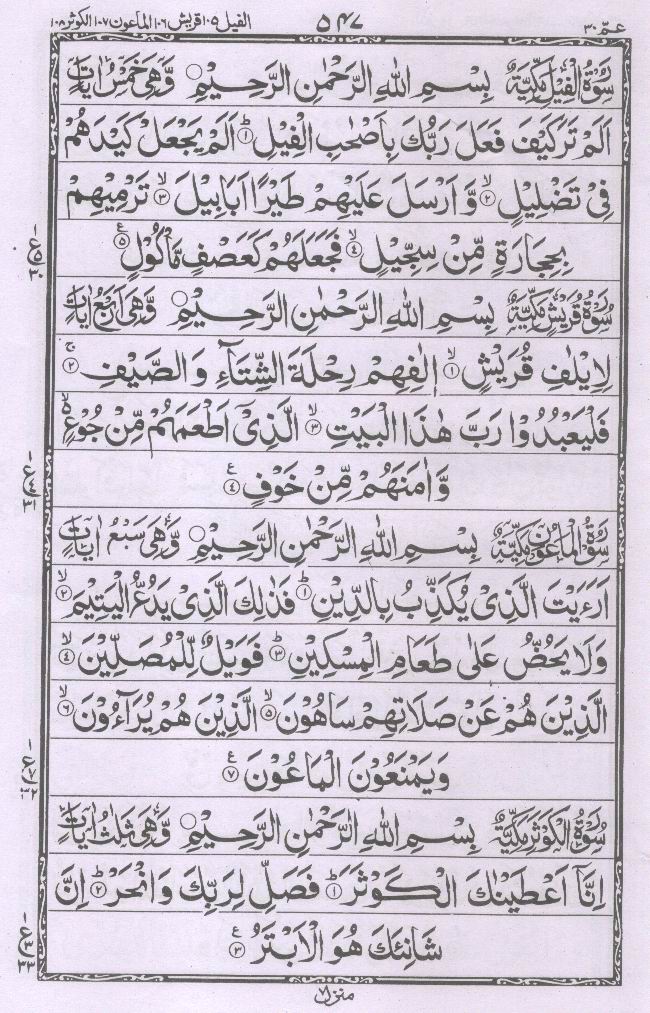 عمّ ٣٠ ٥٤٧ الفیل ١٠٥ قریش ١٠٦ الماعون ١٠٧ الکوثر ١٠٨
سُوْرَةُ الْفِیْلِ مَکِّیَّةٌ بِسْمِ اللهِ الرَّحْمٰنِ الرَّحِیْمِ ○ وَّهِیَ خَمْسُ اٰیَاتٍ
اَلَمْ تَرَ کَیْفَ فَعَلَ رَبُّكَ بِاَصْحٰبِ الْفِیْلِ ؕ﴿۱﴾ اَلَمْ یَجْعَلْ کَیْدَهُمْ
فِیْ تَضْلِیْلٍ ۙ﴿۲﴾ وَّ اَرْسَلَ عَلَیْهِمْ طَیْرًا اَبَابِیْلَ ۙ﴿۳﴾ تَرْمِیْهِمْ
بِحِجَارَةٍ مِّنْ سِجِّیْلٍ ۙ﴿۴﴾ فَجَعَلَهُمْ کَعَصْفٍ مَّاْکُوْلٍ ﴿۵﴾ ع
سُوْرَةُ قُرَیْشٍ مَکِّیَّةٌ بِسْمِ اللهِ الرَّحْمٰنِ الرَّحِیْمِ ○ وَّهِیَ اَرْبَعُ اٰیَاتٍ
لِاِیْلٰفِ قُرَیْشٍ ۙ﴿۱﴾ اٖلٰفِهِمْ رِحْلَةَ الشِّتَآءِ وَ الصَّیْفِ ۚ﴿۲﴾
فَلْیَعْبُدُوْا رَبَّ هٰذَا الْبَیْتِ ۙ﴿۳﴾ الَّذِیْۤ اَطْعَمَهُمْ مِّنْ جُوْعٍ ۙ۬
وَّ اٰمَنَهُمْ مِّنْ خَوْفٍ ﴿۴﴾ ع
سُوْرَةُ الْمَاعُوْنِ مَکِّیَّةٌ بِسْمِ اللهِ الرَّحْمٰنِ الرَّحِیْمِ ○ وَّهِیَ سَبْعُ اٰیَاتٍ
اَرَءَیْتَ الَّذِیْ یُکَذِّبُ بِالدِّیْنِ ؕ﴿۱﴾ فَذٰلِكَ الَّذِیْ یَدُعُّ الْیَتِیْمَ ۙ﴿۲﴾
وَلَا یَحُضُّ عَلٰی طَعَامِ الْمِسْکِیْنِ ؕ﴿۳﴾ فَوَیْلٌ لِّلْمُصَلِّیْنَ ۙ﴿۴﴾
الَّذِیْنَ هُمْ عَنْ صَلَاتِهِمْ سَاهُوْنَ ۙ﴿۵﴾ الَّذِیْنَ هُمْ یُرَآءُوْنَ ۙ﴿۶﴾
وَیَمْنَعُوْنَ الْمَاعُوْنَ ﴿۷﴾ ع
سُوْرَةُ الْکَوْثَرِ مَکِّیَّةٌ بِسْمِ اللهِ الرَّحْمٰنِ الرَّحِیْمِ ○ وَّهِیَ ثَلٰثُ اٰیَاتٍ
اِنَّاۤ اَعْطَیْنٰكَ الْکَوْثَرَ ؕ﴿۱﴾ فَصَلِّ لِرَبِّكَ وَ انْحَرْ ؕ﴿۲﴾ اِنَّ
شَانِئَكَ هُوَ الْاَبْتَرُ ﴿۳﴾ ع
منزل ٧